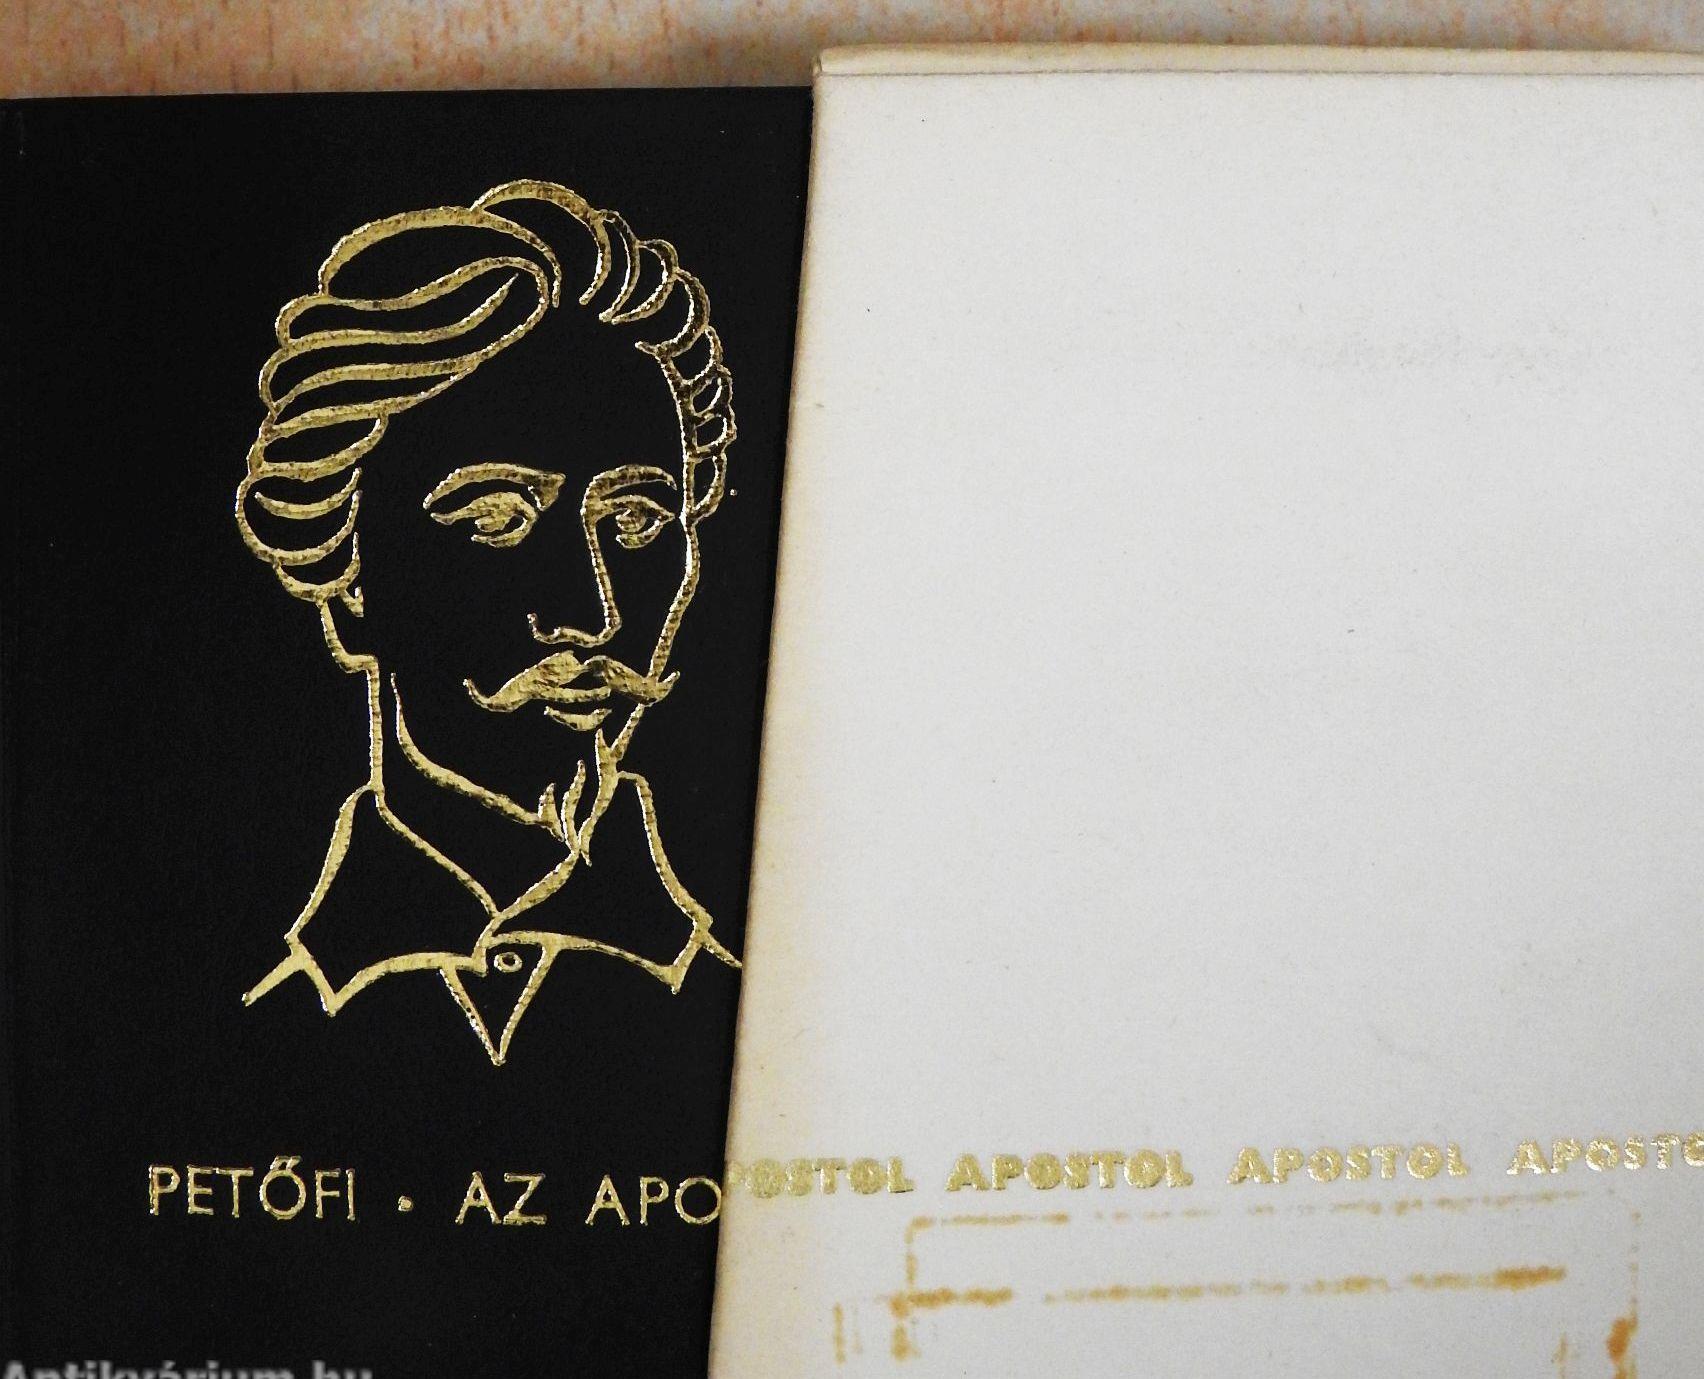 PETŐFI • AZ APO
POSTOL APOSTOL APOSTOL APOSTO
Antikvárium.hu